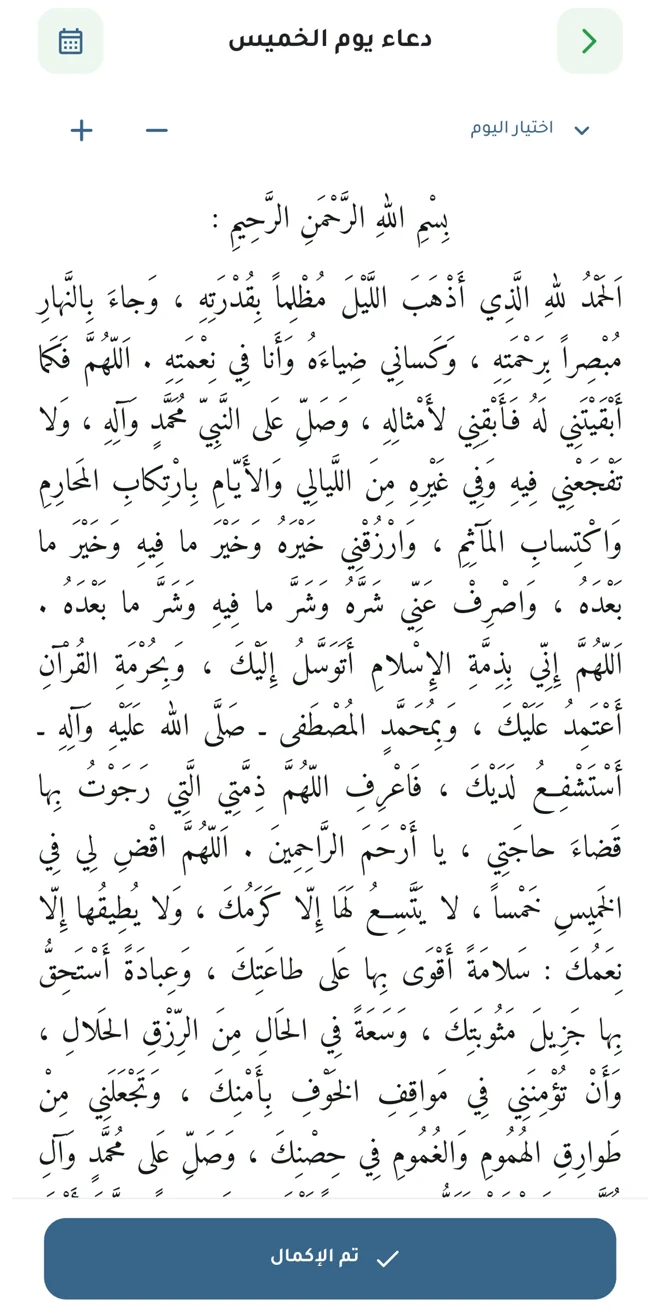 دعاء يوم الخميس
اختيار اليوم
+ −
بِسْمِ اللهِ الرَّحْمَنِ الرَّحِيمِ :
اَلحَمْدُ للهِ الَّذِي أَذْهَبَ اللَّيْلَ مُظْلِماً بِقُدْرَتِهِ ، وَجاءَ بِالنَّهارِ
مُبْصِراً بِرَحْمَتِهِ ، وَكَسانِي ضِياءَهُ وَأَنا فِي نِعْمَتِهِ . اَللّهُمَّ فَكَما
أَبْقَيْتَنِي لَهُ فَأَبْقِنِي لأَمْثالِهِ ، وَصَلِّ عَلى النَّبِيّ مُحَمَّدٍ وَآلِهِ ، وَلا
تَفْجَعْنِي فِيهِ وَفِي غَيْرِهِ مِنَ اللَّيالِي وَالأَيّامِ بِارْتِكابِ المَحارِمِ
وَاكْتِسابِ المَآثِمِ ، وَارْزُقْنِي خَيْرَهُ وَخَيْرَ ما فِيهِ وَخَيْرَ ما
بَعْدَهُ ، وَاصْرِفْ عَنِّي شَرَّهُ وَشَرَّ ما فِيهِ وَشَرَّ ما بَعْدَهُ .
اَللّهُمَّ إِنِّي بِذِمَّةِ الإِسْلامِ أَتَوَسَّلُ إِلَيْكَ ، وَبِحُرْمَةِ القُرْآنِ
أَعْتَمِدُ عَلَيْكَ ، وَبِمُحَمَّدٍ المُصْطَفى ـ صَلَّى الله عَلَيْهِ وَآلِهِ ـ
أَسْتَشْفِعُ لَدَيْكَ ، فَاعْرِفِ اللّهُمَّ ذِمَّتِي الَّتِي رَجَوْتُ بِها
قَضاءَ حاجَتِي ، يا أَرْحَمَ الرَّاحِمِينَ . اَللّهُمَّ اقْضِ لِي فِي
الخَمِيسِ خَمْساً ، لا يَتَّسِعُ لَهَا إِلّا كَرَمُكَ ، وَلا يُطِيقُها إِلّا
نِعَمُكَ : سَلامَةً أَقْوَى بِها عَلى طاعَتِكَ ، وَعِبادَةً أَسْتَحِقُّ
بِها جَزِيلَ مَثُوبَتِكَ ، وَسَعَةً فِي الحَالِ مِنَ الرِّزْقِ الحَلالِ ،
وَأَنْ تُؤْمِنَنِي فِي مَواقِفِ الخَوْفِ بِأَمْنِكَ ، وَتَجْعَلَنِي مِنْ
طَوارِقِ الهُمُومِ وَالغُمُومِ فِي حِصْنِكَ ، وَصَلِّ عَلى مُحَمَّدٍ وَآلِ
تم الإكمال